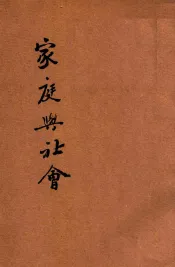 家庭與社會